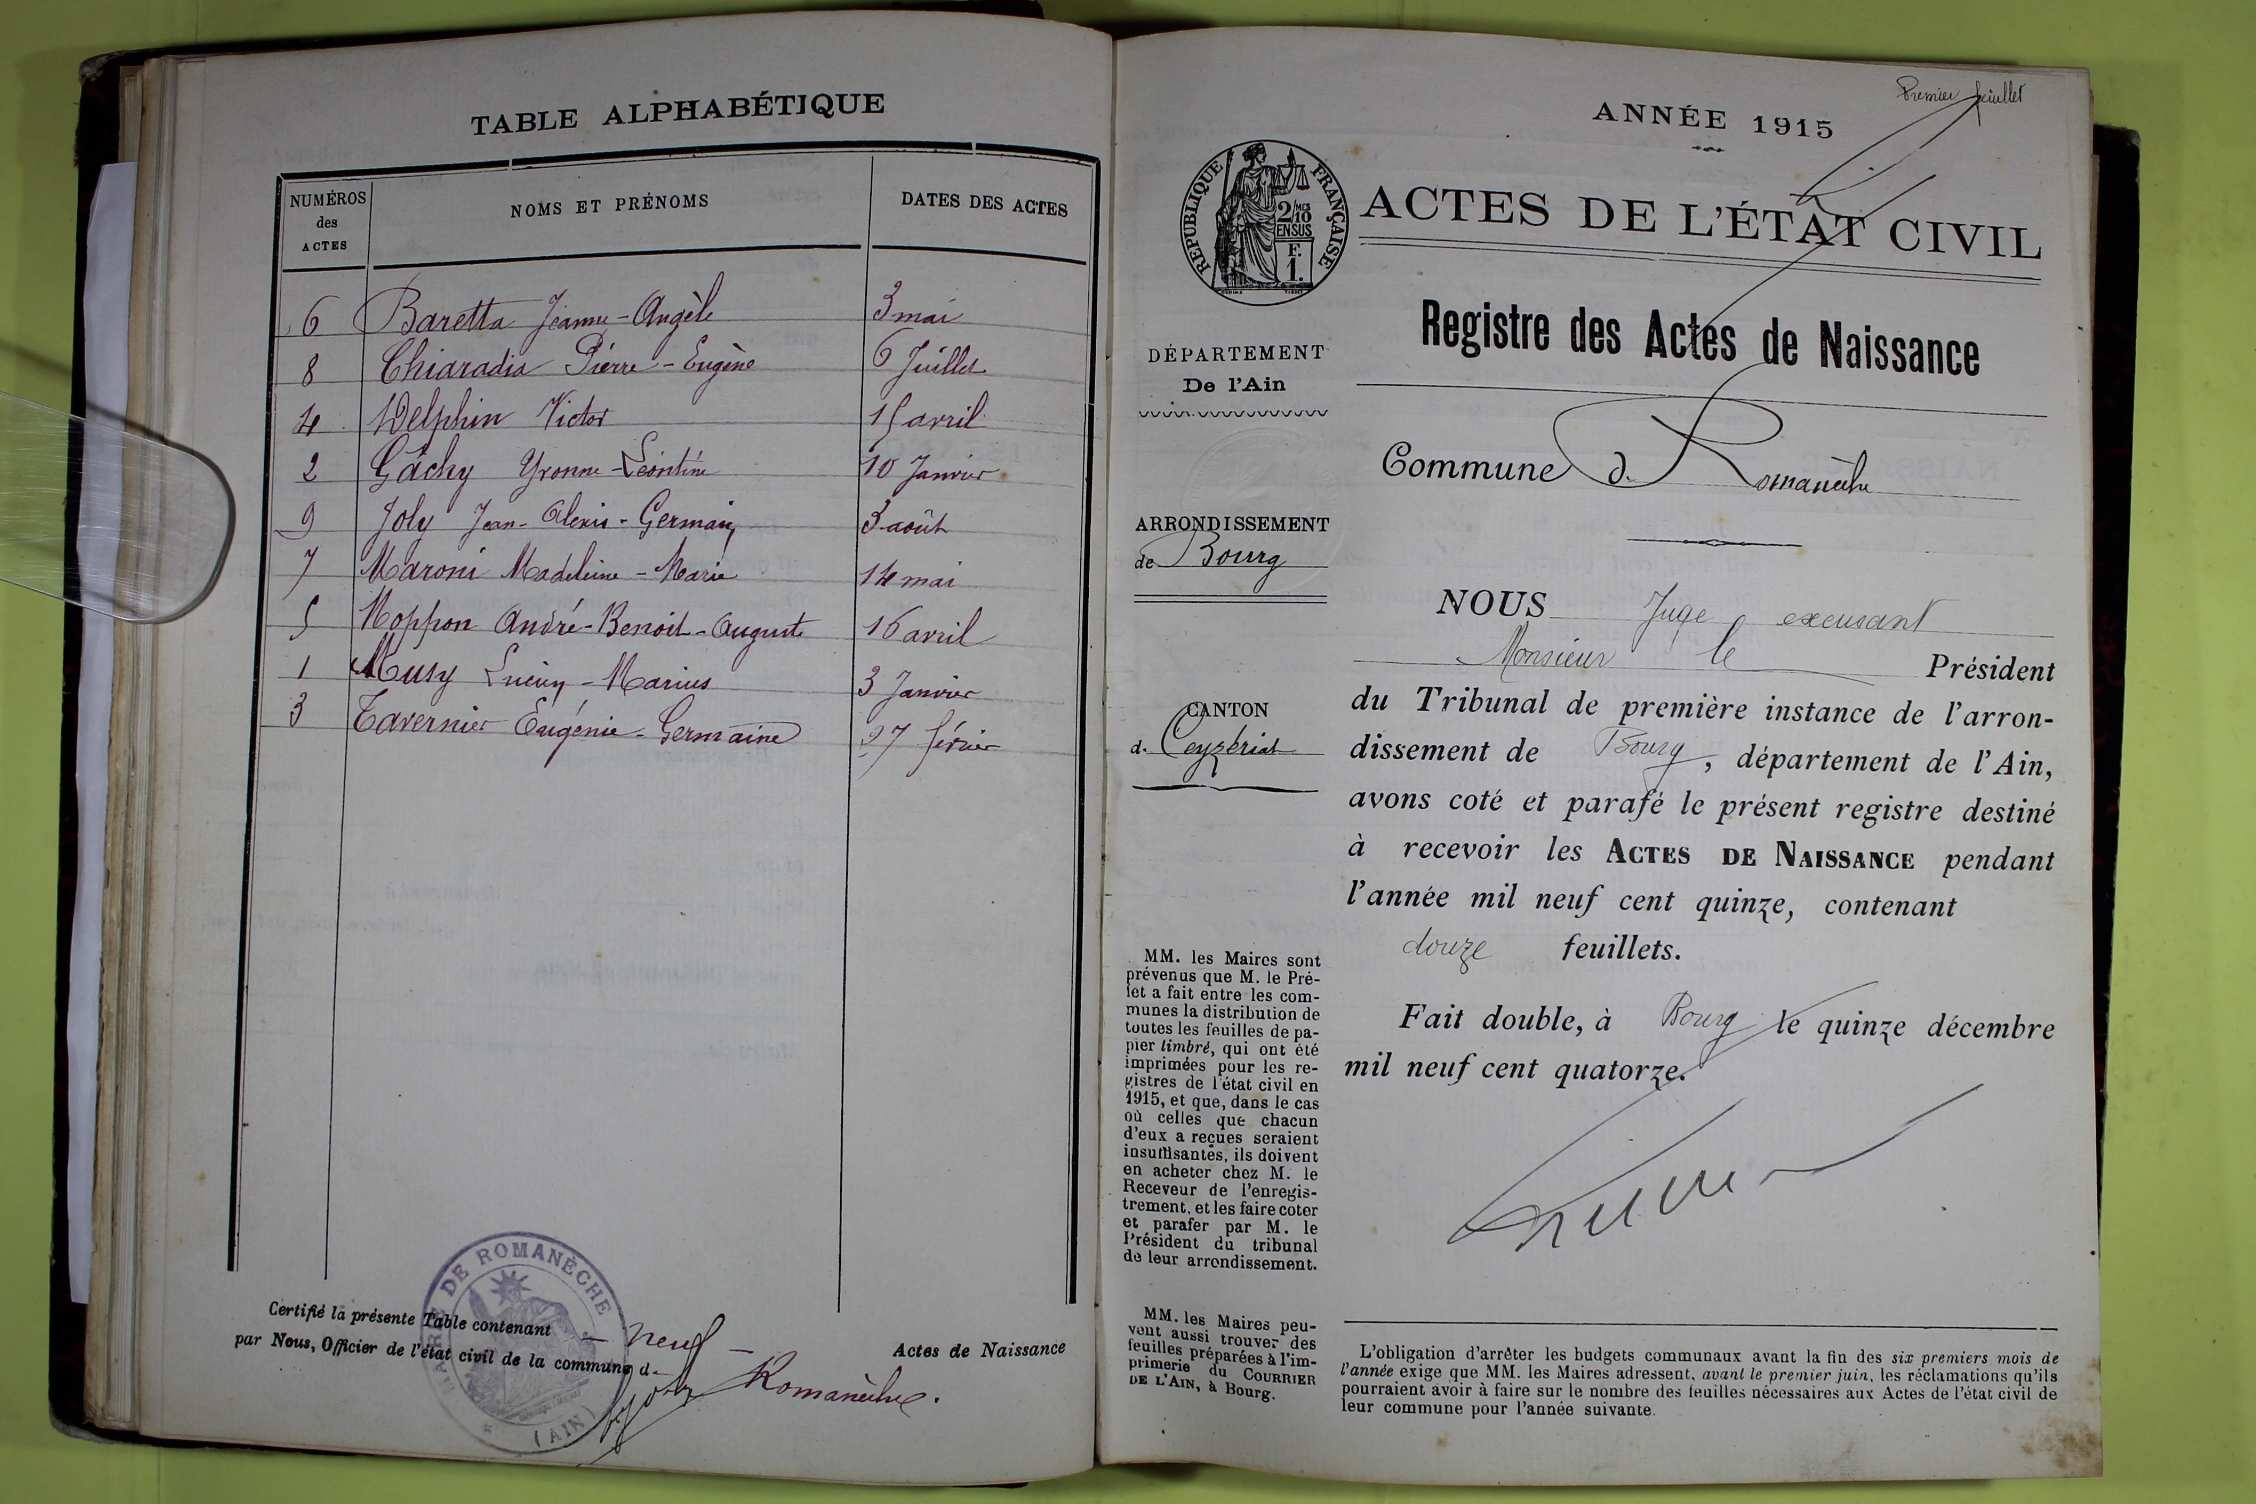 TABLE ALPHABÉTIQUE
NUMÉROS des ACTES
NOMS ET PRÉNOMS
DATES DES ACTES
6 Baretta Jeanne-Angèle 3 mai
8 Chiaradia Pierre-Eugène 6 Juillet
4 Delphin Victor 15 avril
2 Gâchy Yvonne-Léontine 10 Janvier
9 Joly Jean-Alexis-Germain 3 août
7 Maroni Madeleine-Marie 14 mai
5 Moppon André-Benoit-Auguste 16 avril
1 Musy Lucien-Marius 3 Janvier
3 Tavernier Eugénie-Germaine 27 février
MAIRIE DE ROMANÈCHE
(AIN)
Certifié la présente Table contenant neuf Actes de Naissance
par Nous, Officier de l'état civil de la commune de Romanèche.
Joly
Premier feuillet
ANNÉE 1915
RÉPUBLIQUE FRANÇAISE
2/10 MES
EN SUS
F.
1.
ACTES DE L'ÉTAT CIVIL
Registre des Actes de Naissance
Commune de Romanèche
DÉPARTEMENT
De l'Ain
ARRONDISSEMENT
de Bourg
CANTON
de Ceyzériat
MM. les Maires sont
prévenus que M. le Pré-
fet a fait entre les com-
munes la distribution de
toutes les feuilles de pa-
pier timbré, qui ont été
imprimées pour les re-
gistres de l'état civil en
1915, et que, dans le cas
où celles que chacun
d'eux a reçues seraient
insuffisantes, ils doivent
en acheter chez M. le
Receveur de l'enregis-
trement, et les faire coter
et parafer par M. le
Président du tribunal
de leur arrondissement.
MM. les Maires peu-
vent aussi trouver des
feuilles préparées à l'im-
primerie du COURRIER
DE L'AIN, à Bourg.
NOUS Juge excusant
Monsieur le Président
du Tribunal de première instance de l'arron-
dissement de Bourg, département de l'Ain,
avons coté et parafé le présent registre destiné
à recevoir les ACTES DE NAISSANCE pendant
l'année mil neuf cent quinze, contenant
douze feuillets.
Fait double, à Bourg le quinze décembre
mil neuf cent quatorze.
L'obligation d'arrêter les budgets communaux avant la fin des six premiers mois de
l'année exige que MM. les Maires adressent, avant le premier juin, les réclamations qu'ils
pourraient avoir à faire sur le nombre des feuilles nécessaires aux Actes de l'état civil de
leur commune pour l'année suivante.